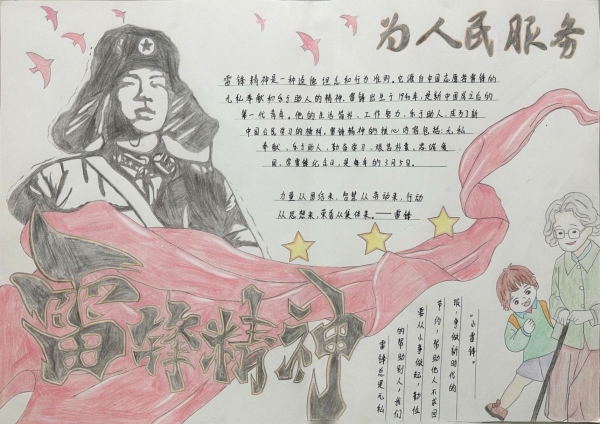 为人民服务
雷锋精神是一种道德理念和行为准则。它源自中国志愿者雷锋的
无私奉献和乐于助人的精神，雷锋出生于1940年，是新中国成立后的
第一代青年。他的生活简朴、工作努力、乐于助人，成为了新
中国公民学习的榜样。雷锋精神的核心内容包括：无私
奉献、乐于助人、勤奋学习、艰苦朴素、忠诚爱
国。学雷锋纪念日，是每年的3月5日。
力量从团结来，智慧从劳动来，行动
从思想来，荣誉从集体来。——雷锋
雷锋精神
雷锋总是无私
的帮助别人，我们
要从小事做起，勤俭
节约，帮助他人不求回
报，争做新时代的
“小雷锋”。